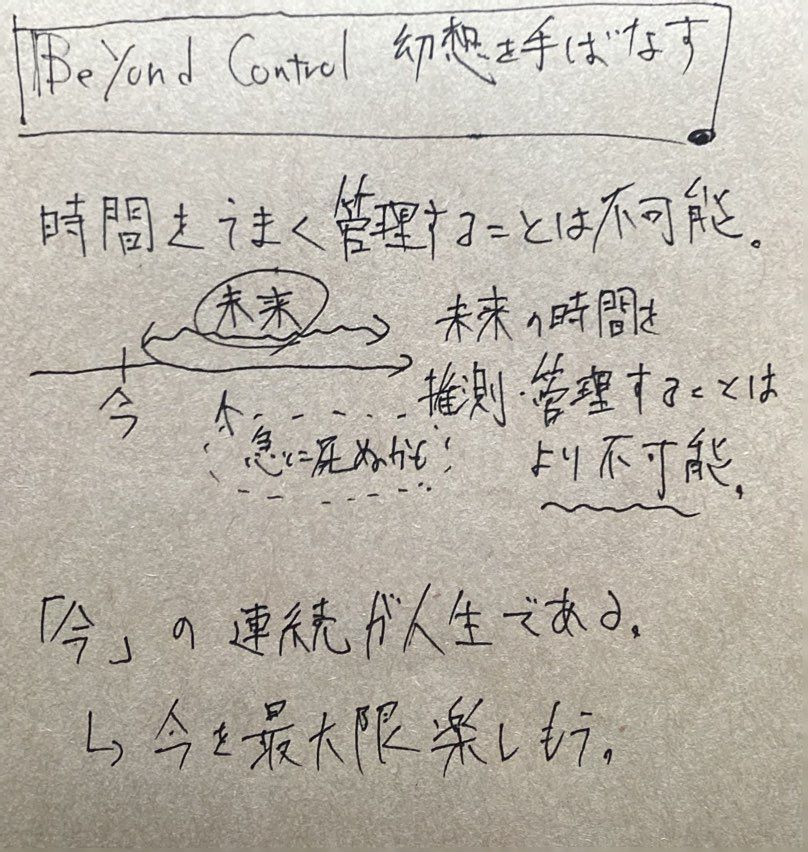 Beyond Control 幻想を手ばなす
時間をうまく管理することは不可能。
未来
今
急に死ぬかも!
未来の時間を
推測・管理することは
より不可能。
「今」の連続が人生である。
↳ 今を最大限楽しもう。